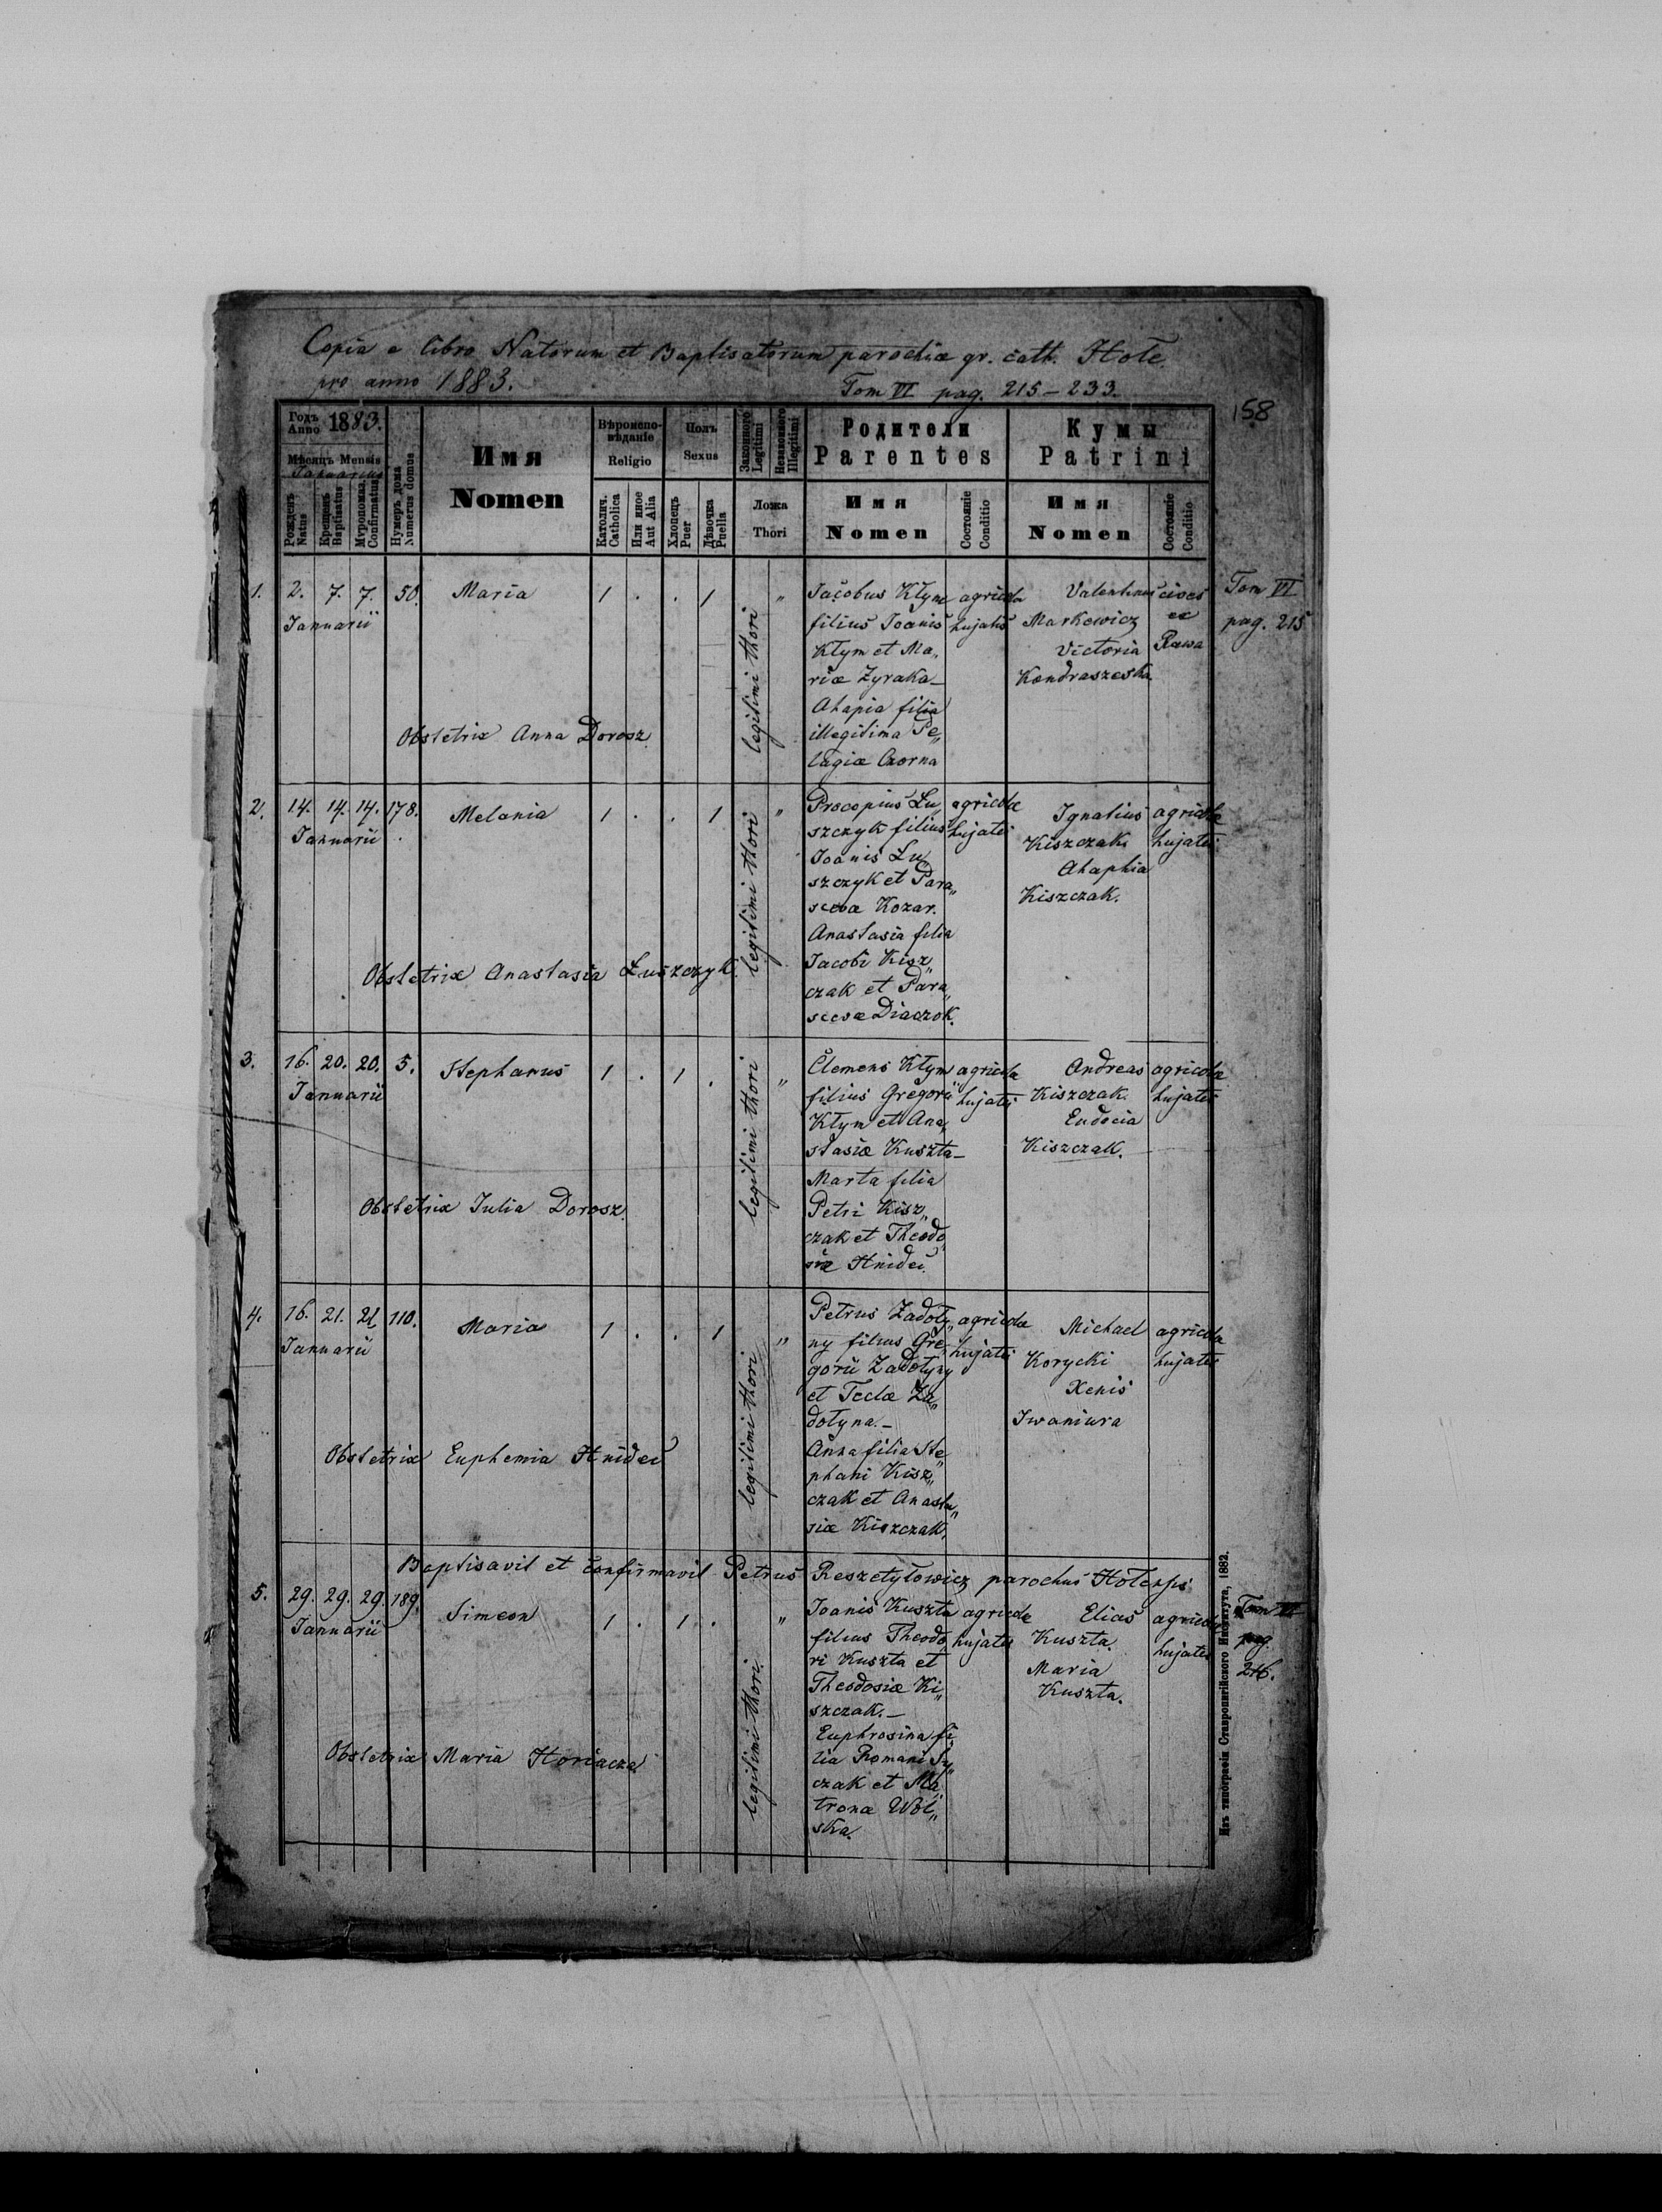 Copia e libro Natorum et Baptisatorum parochiæ gr. cath. Hole
pro anno 1883. Tom VI pag. 215–233.
158
Годъ Anno 1883.
Мѣсяцъ Mensis
Januarius
Рожденъ Natus
Крещенъ Baptisatus
Мѵропомаз. Confirmatus
Нумеръ дома Numerus domus
Имя
Nomen
Вѣроиспо-
вѣданіе
Religio
Католич. Catholica
Или иное Aut Alia
Полъ
Sexus
Хлопецъ Puer
Дѣвочка Puella
Законного Legitimi
Незаконного Illegitimi
Ложа
Thori
Родители
Parentes
Имя
Nomen
Состояніе Conditio
Кумы
Patrini
Имя
Nomen
Состояніе Conditio
1. 2. 7. 7. 50. Maria 1 . . 1 "
Januarii
legitimi thori
Jacobus Kłym
filius Joanis
Kłym et Ma„
riæ Zyraka–
Ahapia filia
illegitima Pe„
lagiæ Czorna
agricola
hujatis
Valentinus
Markowicz
Victoria
Kondraszeska
cives
ex
Rawa
Tom VI
pag. 215
Obstetrix Anna Dorosz.
2. 14. 14. 14. 178. Melania 1 . . 1 "
Januarii
legitimi thori
Procopius Lu„
szczyk filius
Joanis Lu„
szczyk et Para„
scevæ Kozar.
Anastasia filia
Jacobi Kisz„
czak et Para„
scevæ Diaczok.
agricolæ
hujates
Ignatius
Kiszczak
Ahaphia
Kiszczak.
agricolæ
hujates
Obstetrix Anastasia Łuszczyk.
3. 16. 20. 20. 5. Stephanus 1 . 1 . "
Januarii
legitimi thori
Clemens Kłym
filius Gregorii
Kłym et Ana„
stasiæ Kuszta–
Marta filia
Petri Kisz„
czak et Theodo
siæ Hnidei.
agricolæ
hujates
Andreas
Kiszczak.
Eudocia
Kiszczak.
agricolæ
hujates
Obstetrix Julia Dorosz.
4. 16. 21. 21. 110. Maria 1 . . 1 "
Januarii
legitimi thori
Petrus Zadoty„
ny filius Gre„
gorii Zadotyny
et Teclæ Za„
dotyna.–
Anna filia Ste„
phani Kisz„
czak et Anasta„
siæ Kiszczak.
agricolæ
hujates
Michael
Korycki
Xenis
Iwaniura
agricolæ
hujates
Obstetrix Euphemia Hnidei
Baptisavit et confirmavit Petrus Reszetyłowicz parochus
5. 29. 29. 29. 189. Simeon 1 . 1 . "
Januarii
legitimi thori
Joanis Kuszta
filius Theodo„
ri Kuszta et
Theodosiæ Ki„
szczak.–
Euphrosina fi„
lia Romani
czak et Ma„
tronæ Wol„
ska.
agricolæ
hujates
Elias
Kuszta.
Maria
Kuszta.
agricolæ
hujates
Tom VI
pag.
216.
Obstetrix Maria
Изъ типографіи Ставропигійского Института, 1882.